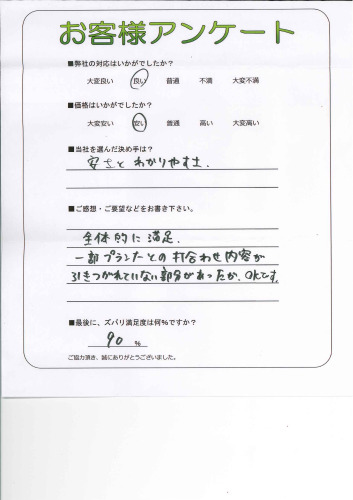 お客様アンケート
■弊社の対応はいかがでしたか?
大変良い 良い 普通 不満 大変不満
■価格はいかがでしたか?
大変安い 安い 普通 高い 大変高い
■当社を選んだ決め手は?
安さと わかりやすさ.
■ご感想・ご要望などをお書き下さい。
全体的に満足.
一部プランナとの打合わせ内容が
引きつがれていない部分があったが、OKです.
■最後に、ズバリ満足度は何%ですか?
90 %
ご協力頂き、誠にありがとうございました。